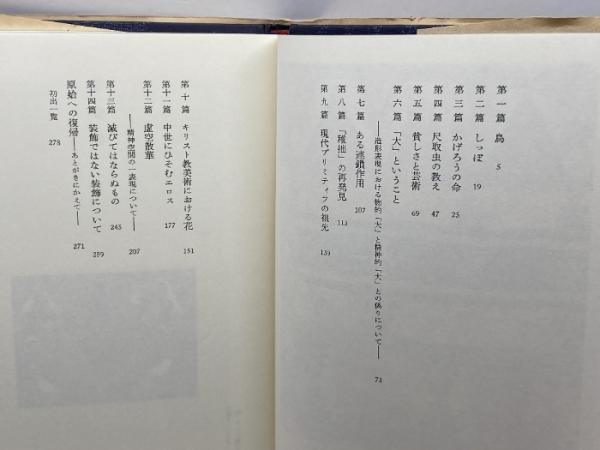 第一篇 鳥 5
第二篇 しっぽ 19
第三篇 かげろうの命 25
第四篇 尺取虫の教え 47
第五篇 貧しさと芸術 69
第六篇 「大」ということ
――造形表現における物的「大」と精神的「大」との係りについて―― 73
第七篇 ある連鎖作用 107
第八篇 「稚拙」の再発見 113
第九篇 現代プリミティフの祖先 139
第十篇 キリスト教美術における花 151
第十一篇 中世にひそむエロス 177
第十二篇 虚空散華
――精神空間の一表現について―― 207
第十三篇 滅びてはならぬもの 245
第十四篇 装飾ではない装飾について 259
原始への復帰――あとがきにかえて―― 271
初出一覧 278